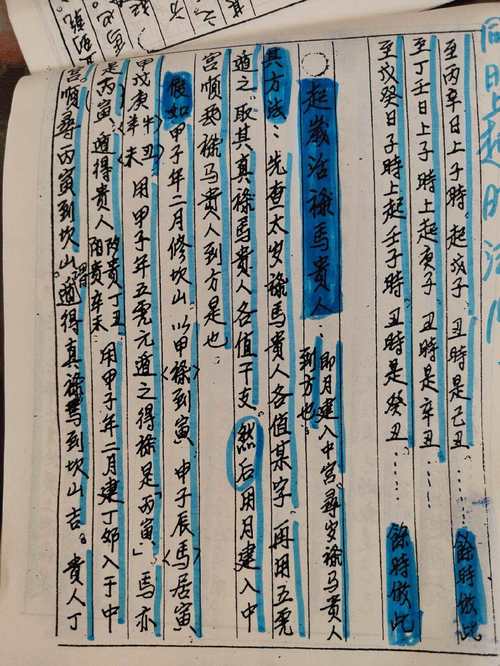 同日起時法
至丙辛日上子時。起戊子、丑時是己丑。……餘時做此
至丁壬日上子時上起庚子、丑時是辛丑。……
至戊癸日子時上起壬子時。丑時是癸丑。……餘時做此
起歲活祿馬貴人：即月建入中宮。尋岁祿馬貴人到方也。
其方法：先查太岁祿馬貴人各值某字。再用五虎
遁之。取其真祿馬貴人各值干支。然后用月建入中
宮順尋祿馬貴人到方是也。
假如甲子年二月修坎山。以甲祿到寅。申子辰馬居寅
甲戊庚牛羊丑未用甲子年五虎元遁之得祿是「丙寅」馬亦
是丙寅。遁得貴人陰貴丁丑陽貴辛未用甲子年二月建丁卯入于中
宮順尋丙寅到坎山。謂遁得真祿馬到坎山吉。貴人丁